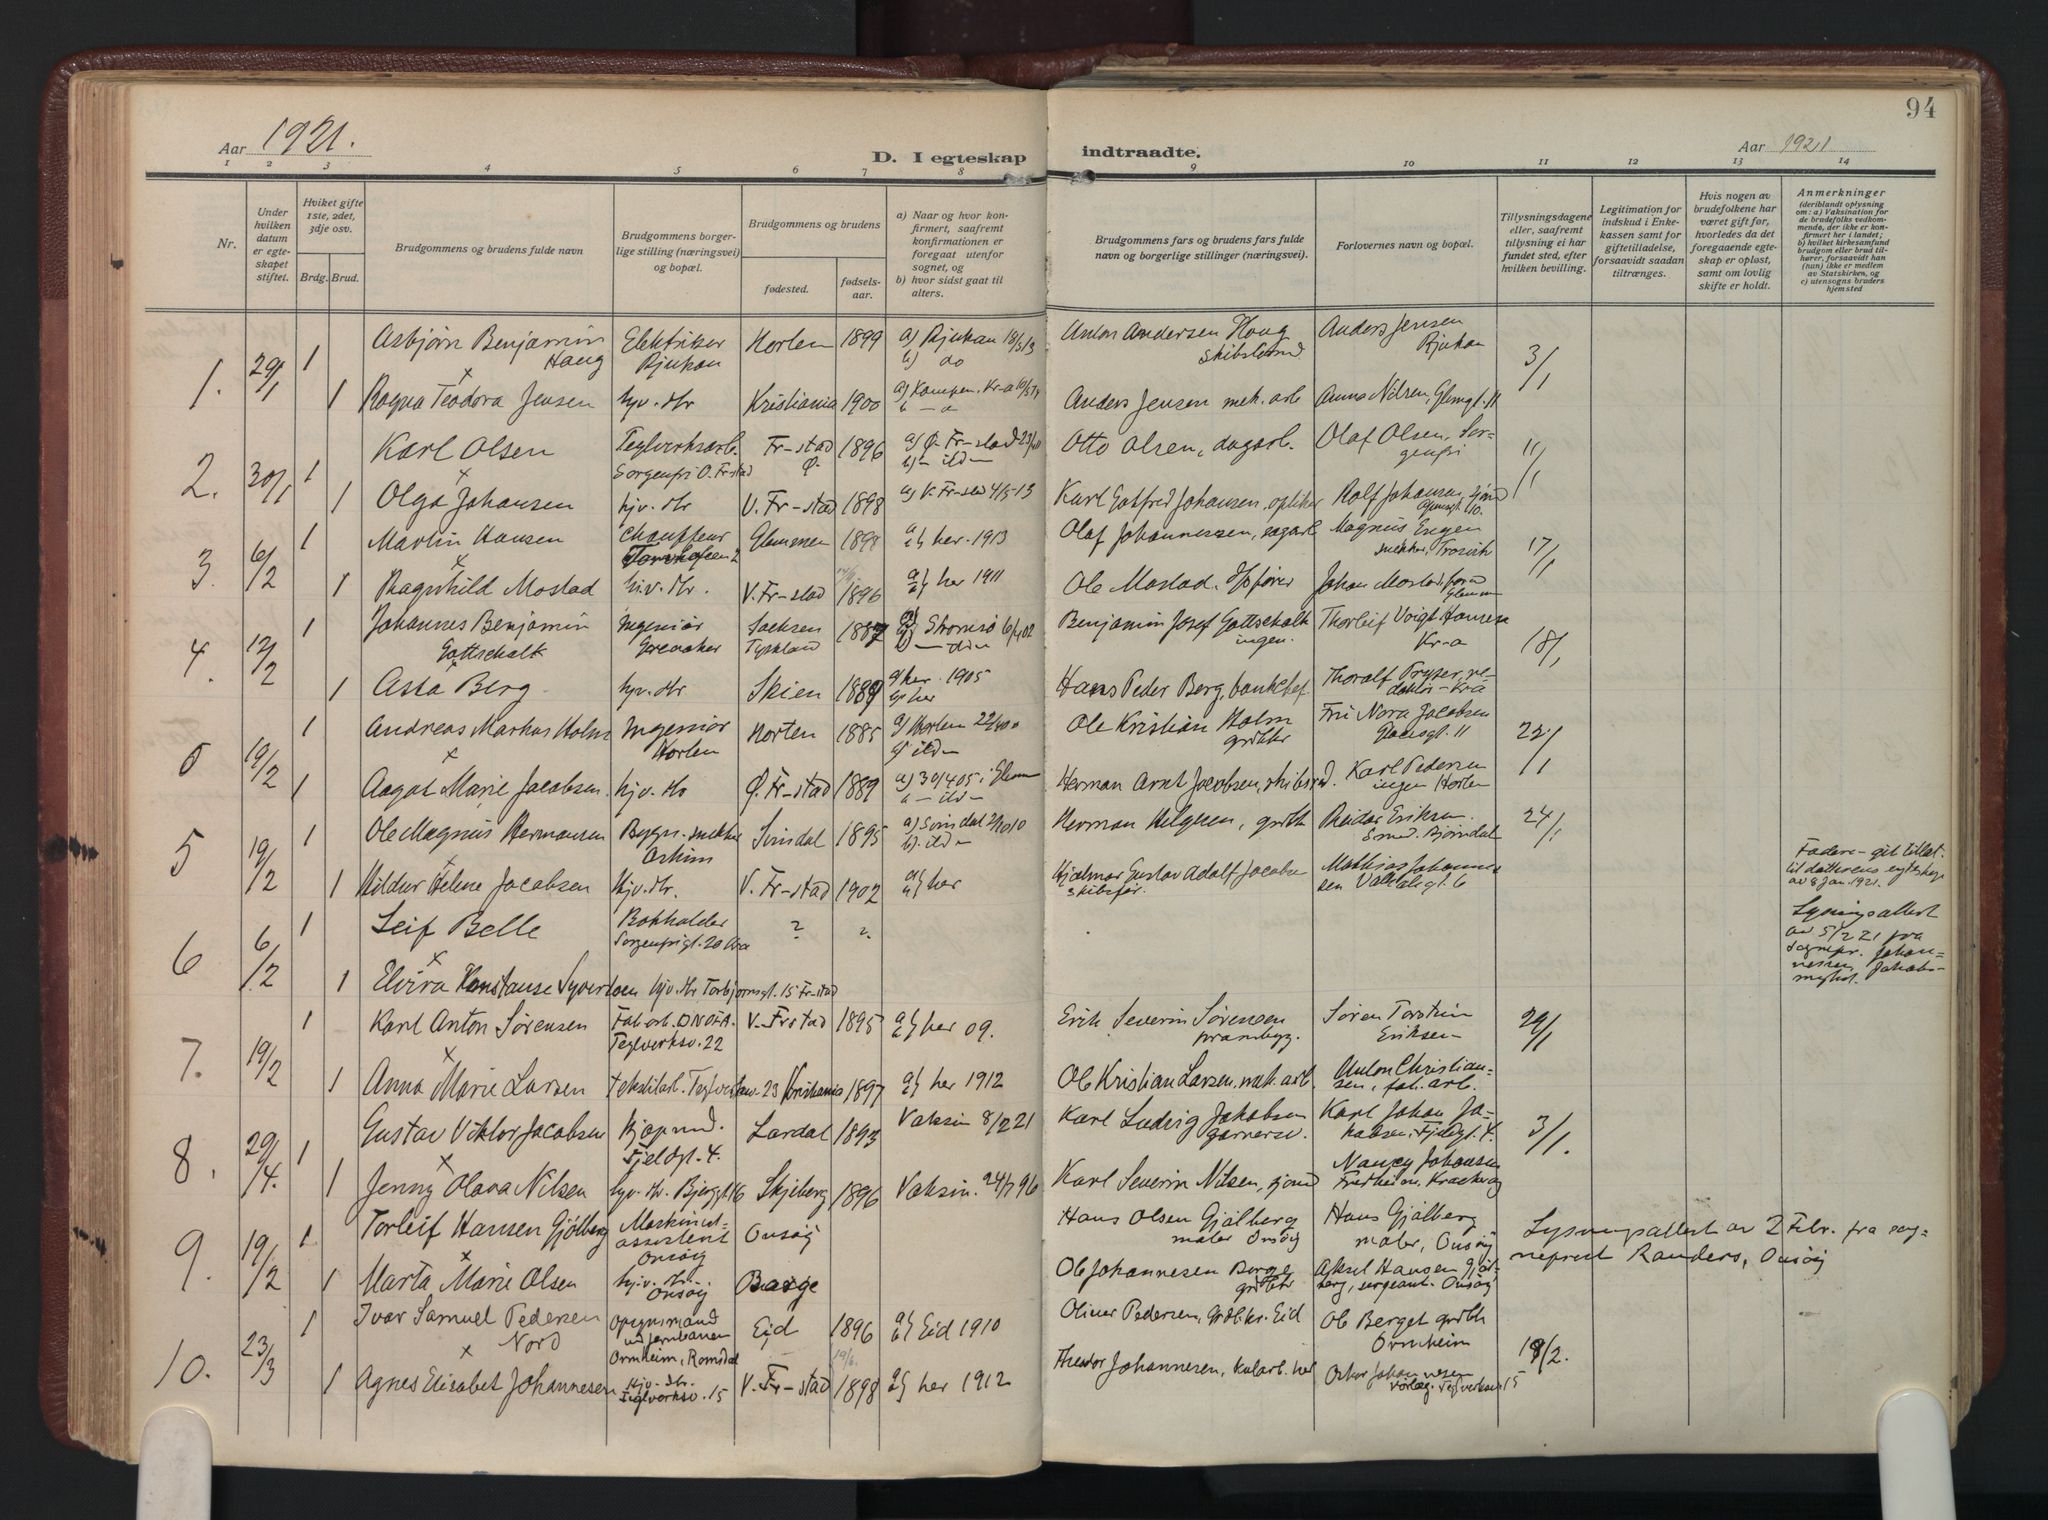 94
Aar 1921.
D. I egteskap indtraadte.
Aar 1921
1 2 3 4 5 6 7 8 9 10 11 12 13 14
Nr.
Under hvilken datum er egteskapet stiftet.
Hviket gifte 1ste, 2det, 3dje osv.
Brdg. Brud.
Brudgommens og brudens fulde navn
Brudgommens borgerlige stilling (næringsvei) og bopæl.
Brudgommens og brudens
fødested.
fødselsaar.
a) Naar og hvor konfirmert, saafremt konfirmationen er foregaat utenfor sognet, og
b) hvor sidst gaat til alters.
Brudgommens fars og brudens fars fulde navn og borgerlige stillinger (næringsvei).
Forlovernes navn og bopæl.
Tillysningsdagene eller, saafremt tillysning ei har fundet sted, efter hvilken bevilling.
Legitimation for indskud i Enkekassen samt for giftetilladelse, forsaavidt saadan tiltrænges.
Hvis nogen av brudefolkene har været gift før, hvorledes da det foregaaende egteskap er opløst, samt om lovlig skifte er holdt.
Anmerkninger
(deriblandt oplysning om: a) Vaksination for de brudefolks vedkommende, der ikke er konfirmert her i landet; b) hvilket kirkesamfund brudgom eller brud tilhører, forsaavidt han (hun) ikke er medlem av Statskirken, og c) utensogns bruders hjemsted
1. 29/1 1 Asbjørn Benjamin Haug Elektriker Rjukan Horten 1899 a) Rjukan 18/5 13 b) do Anton Andersen Haug Anders Jensen Rjukan 3/1
1 Ragna Teodora Jensen hjv. dtr Kristiania 1900 a) Kampen, Kr-a Anders Jensen mek. arb Anna Nilsen, Glemgt. 11
2. 30/1 1 Karl Olsen Teglverksarb. Sorgenfri O. Frstad Fr-stad Ø. 1896 a) Ø. Fr-stad b) - ildn Otto Olsen, dagarb. Olaf Olsen, Sorgenfri 11/1
1 Olga Johansen hjv. dtr V. Fr-stad 1898 a) V. Fr-stad 4/5-13 Karl Gotfred Johansen, optiker Rolf Johansen,
3. 6/2 1 Martin Hansen Chauffeur Glemmen 1898 a b her 1913 Olaf Johannessen, sagarb Magnus Engen snekker, Trosvik 17/1
1 Ragnhild Mostad hjv. dtr. V. Fr-stad 1896 a b her 1911 Ole Mostad, Johan Mostad,
4. 12/2 1 Johannes Benjamin Gottschalk Ingeniør Greaaker Sachsen Tyskland 1887 a) Strømsø 6/4 02 Benjamin Josef Gottschalk ingen. Thorleif Voigt Hansen Kr-a 18/1
1 Asta Berg hjv. dtr Skien 1889 a) her 1905 b) her Hans Peder Berg, bankchef Thoralf Pryser, redaktør - Kra
5 19/2 1 Andreas Markus Holm Ingeniør Horten Horten 1885 a) Horten b) ildn Ole Kristian Holm Frk Nora Jacobsen 22/1
1 Aagot Marie Jacobsen hjv. Ø. Fr-stad 1889 Herman Arnt Jacobsen, Karl Pedersen ingen Horten
5 19/2 1 Ole Magnus Hermansen Bygn. snekker Askim Svindal 1895 a) Svindal b) ildn Herman Helgesen, Reidar Eriksen. Smed. Bjørndal 24/1
1 Hildur Helene Jacobsen hjv. dtr. V. Fr-stad 1902 a b her Hjalmar Gustav Adolf Jacobsen skibsfør. Mathias Johannessen 6 Faderen git tillat. til datterens av 8 Jan 1921.
6 6/2 1 Leif Belle Bokholder Sorgenfrigt. 20 ? ? Lysningsattest av 5/2 21 fra sognepr. Johannessen, Jakobs-
1 Elvira Konstanse Syvertsen hjv. dtr Torbjørnsgt. 15 Fr-stad
7. 19/2 1 Karl Anton Sørensen Fab. arb. Teglverksv. 22 V. Frstad 1895 a b her 09. Erik Severin Sørensen prambyg. Søren Torstein Eriksen 29/1
1 Anna Marie Larsen tekstilarb. 23 Kristiania 1897 a b her 1912 Ole Kristian Larsen, mek. arb. Anton Christiansen, fab. arb.
8. 29/4. 1 Gustav Viktor Jacobsen Kjøpmd. Fjeldgt. 4. Lardal 1893 Vaksin 8/2 21 Karl Ludvig Jakobsen garversv. Karl Johan Jakobsen, Fjeldgt. 4. 3/1.
1 Jenny Olava Nilsen hjv. dtr. Bjerggt. 16 Skjeberg 1896 Vaksin. 24/7 96 Karl Severin Nilsen, sjømd Nancy Johansen Fredheim,
9. 19/2 1 Torleif Hansen Gjølberg Maskinistassistent Onsøy Onsøy Hans Olsen Gjølberg maler Onsøy Hans Gjølberg maler, Onsøy Lysningsattest av 2 Febr. fra sogneprest Randers, Onsøy
1 Marta Marie Olsen hjv. dtr. Onsøy Borge Ole Johannesen Borge Aksel Hansen Gjølberg, sergeant. Onsøy
10. 23/3 1 Ivar Samuel Pedersen Nord ved jernbanen Ormheim, Romsdal Eid 1896 a b Eid 1910 Oliver Pedersen, Grdbr. Eid Ole Berget Ormheim 18/2.
1 Agnes Elisabet Johannesen hjv. dtr. Teglverksv. 15 V. Fr-stad 1898 a b her 1912 Theodor Johannesen, kularb. her Oskar Johannesen Teglverksv 15